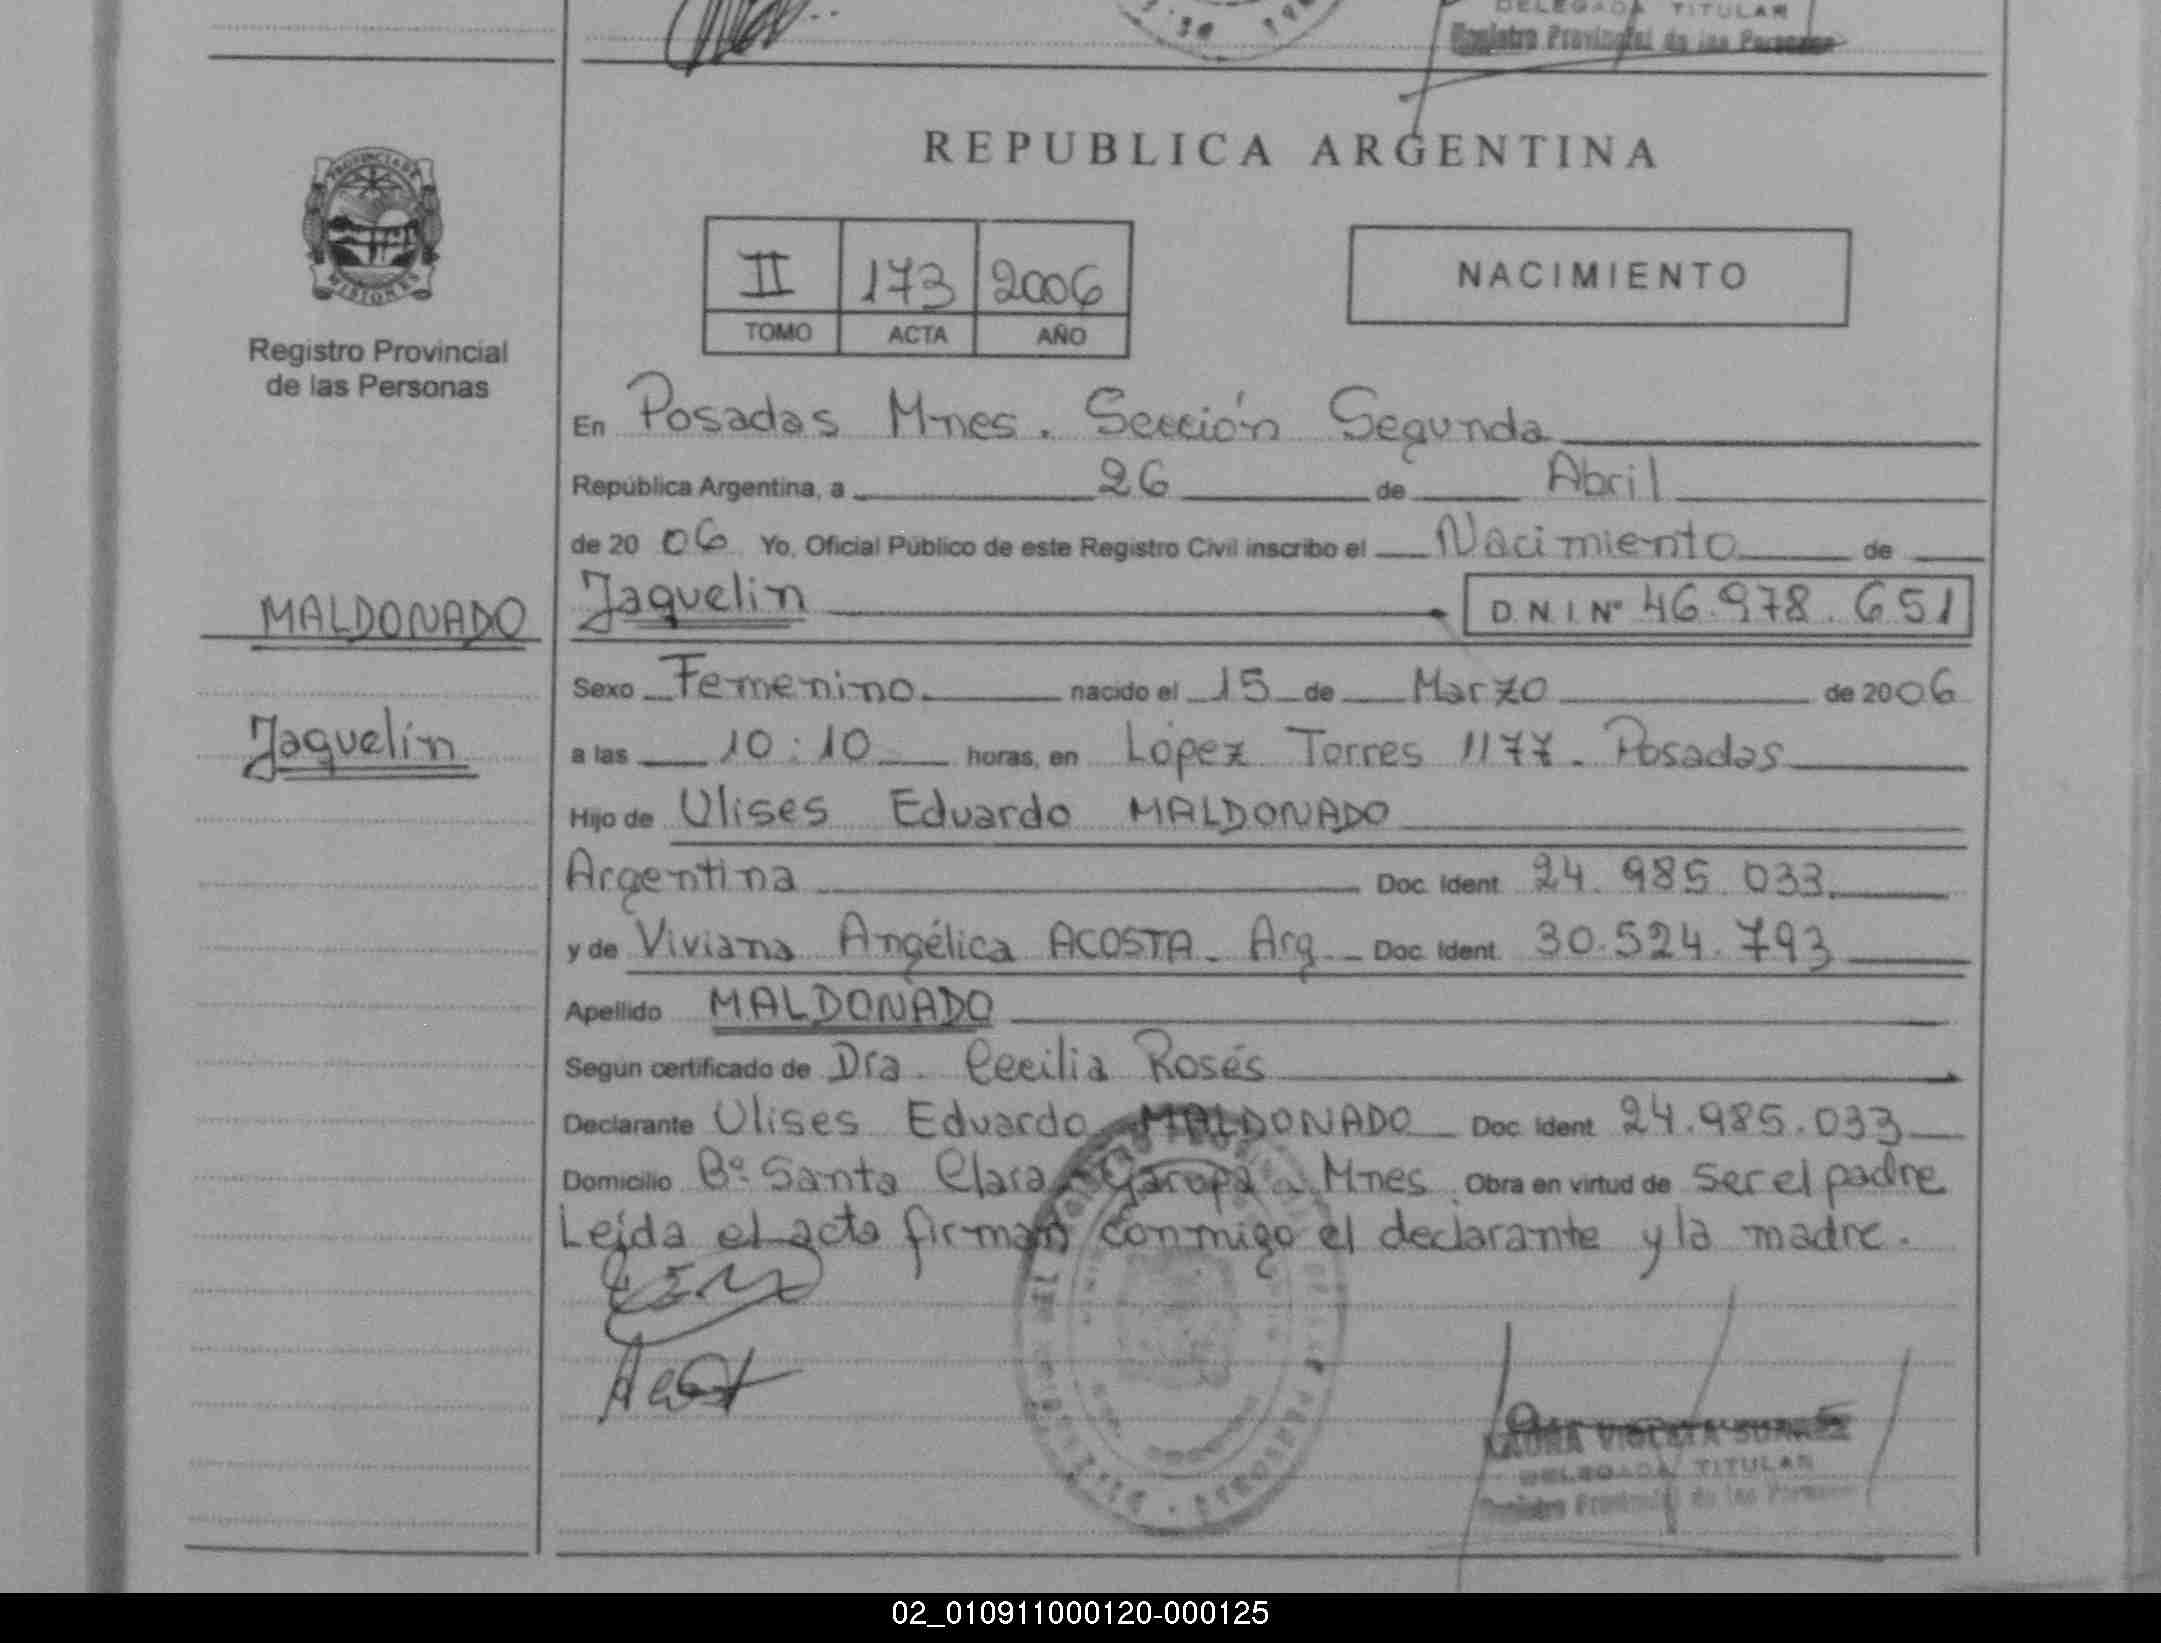 DELEGADA TITULAR
Registro Provincial de las Personas
PROVINCIA DE
MISIONES
Registro Provincial
de las Personas
MALDONADO
Jaquelin
REPUBLICA ARGENTINA
II 173 2006
TOMO ACTA AÑO
NACIMIENTO
En Posadas Mnes. Sección Segunda
República Argentina, a 26 de Abril
de 20 06 Yo, Oficial Público de este Registro Civil inscribo el Nacimiento de
Jaquelin D.N.I.Nº 46.978.651
Sexo Femenino nacido el 15 de Marzo de 2006
a las 10:10 horas, en López Torres 1177. Posadas
Hijo de Ulises Eduardo MALDONADO
Argentina Doc. Ident. 24.985.033
y de Viviana Angélica ACOSTA. Arg. Doc. Ident. 30.524.793
Apellido MALDONADO
Según certificado de Dra. Cecilia Rosés
Declarante Ulises Eduardo MALDONADO Doc. Ident. 24.985.033
Domicilio Bº Santa Clara Garupá Mnes Obra en virtud de ser el padre
Leída el acta firman conmigo el declarante y la madre.
LAURA VIOLETA SUAREZ
DELEGADA TITULAR
Registro Provincial de las Personas
02_010911000120-000125